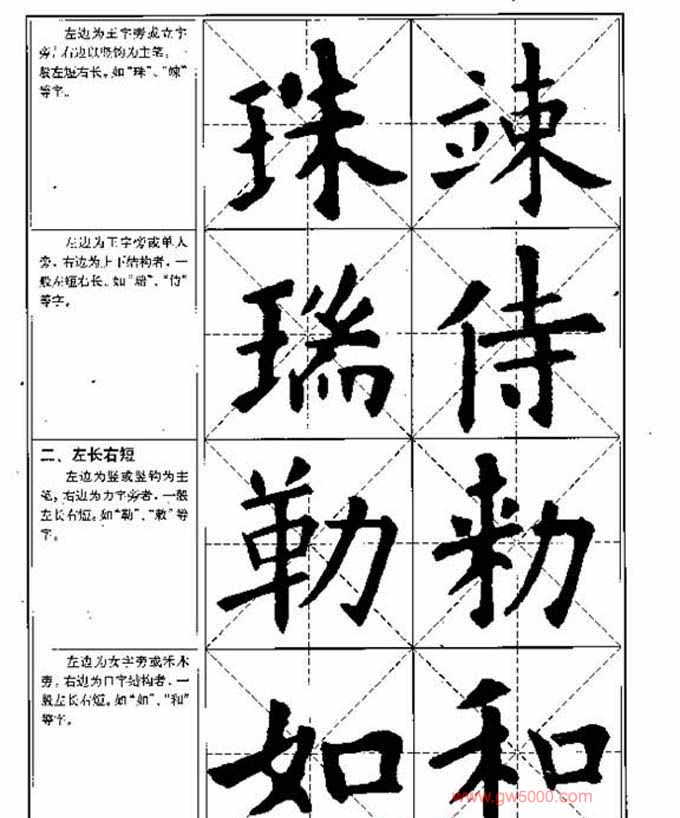 左边为王字旁或立字
旁,右边以竖钩为主笔,一
般左短右长。如“珠”、“竦”
等字。
珠 竦
左边为王字旁或单人
旁,右边为上下结构者,一
般左短右长。如“瑞”、“侍”
等字。
瑞 侍
二、左长右短
左边为竖或竖钩为主
笔,右边为力字旁者,一般
左长右短。如“勒”、“敕”等
字。
勒 勑
左边为女字旁或禾木
旁,右边为口字结构者,一
般左长右短。如“如”、“和”
等字。
如 和
www.gw5000.com